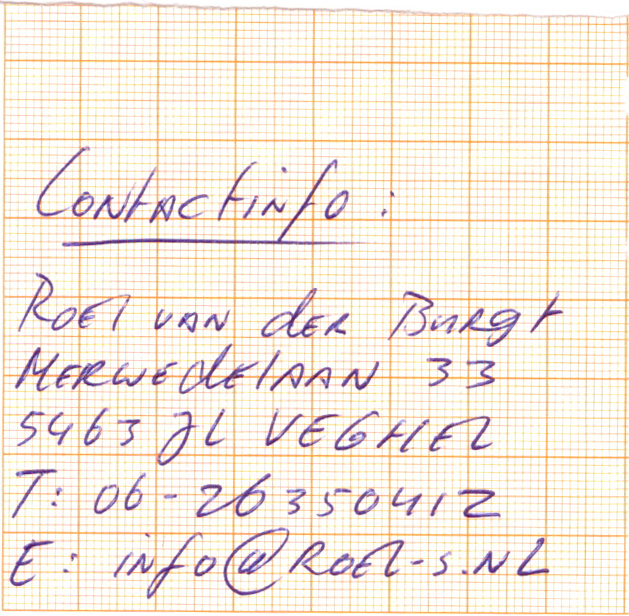 Contactinfo:
Roel van der Burgt
Merwedelaan 33
5463 JL VEGHEL
T: 06-26350412
E: info@Roel-s.NL